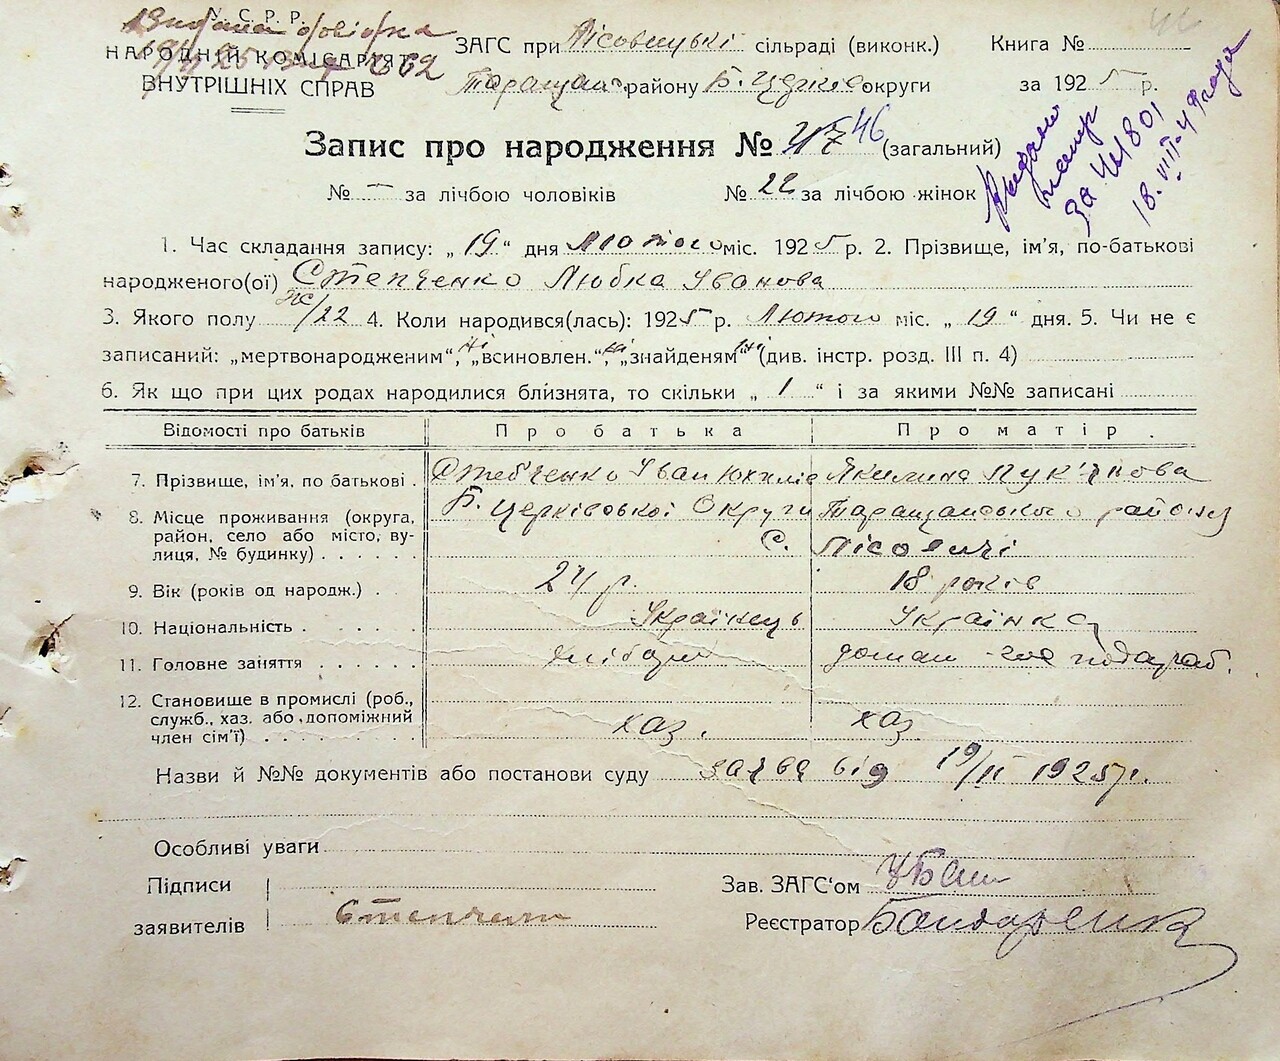 У. С. Р. Р.
НАРОДНІЙ КОМІСАРІЯТ
ВНУТРІШНІХ СПРАВ
ЗАГС при Лісовицькі сільраді (виконк.)
Таращан. району Б. Церків округи
Книга №
за 1925 р.
Запис про народження № 46 (загальний)
№ — за лічбою чоловіків № 22 за лічбою жінок
за № 1801
18. VIII-4
1. Час складання запису: „19“ дня Лютого міс. 1925 р. 2. Прізвище, ім'я, по-батькові
народженого(ої) Степченко Любка Іванова
3. Якого полу ж/22 4. Коли народився(лась): 1925 р. Лютого міс. „19“ дня. 5. Чи не є
записаний: „мертвонародженим“, ні „всиновлен.“, ні „знайденям“ ні (див. інстр. розд. III п. 4)
6. Як що при цих родах народилися близнята, то скільки „1“ і за якими №№ записані
Відомості про батьків Про батька Про матір.
7. Прізвище, ім'я, по батькові. Степченко Іван Якилина Лук'янова
8. Місце проживання (округа, район, село або місто, вулиця, № будинку) Б. Церківської Округи Таращанського району
с. Лісовичі
9. Вік (років од народж.) 24 р. 18 років
10. Національність Українець Українка
11. Головне заняття хлібороб домаш. господар.
12. Становище в промислі (роб., служб., хаз. або допоміжний член сім'ї) хаз. хаз
Назви й №№ документів або постанови суду заява від 19/II 1925 р.
Особливі уваги
Підписи
заявителів Степченко
Зав. ЗАГС'ом
Реєстратор Бондаренко